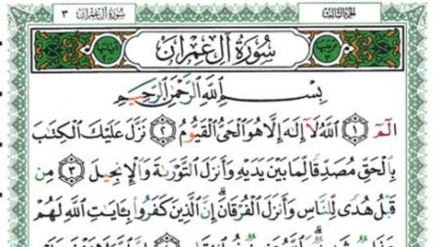 سُورَةُ آلِ عِمْرَانَ ٣
الجزء الثالث
سُورَةُ آلِ عِمْرَانَ
بِسْمِ اللَّهِ الرَّحْمَٰنِ الرَّحِيمِ
الٓمٓ ١ اللَّهُ لَآ إِلَٰهَ إِلَّا هُوَ الْحَيُّ الْقَيُّومُ ٢ نَزَّلَ عَلَيْكَ الْكِتَٰبَ
بِالْحَقِّ مُصَدِّقًا لِّمَا بَيْنَ يَدَيْهِ وَأَنزَلَ التَّوْرَىٰةَ وَالْإِنجِيلَ ٣ مِن
قَبْلُ هُدًى لِّلنَّاسِ وَأَنزَلَ الْفُرْقَانَ ۗ إِنَّ الَّذِينَ كَفَرُوا۟ بِـَٔايَٰتِ اللَّهِ لَهُمْ